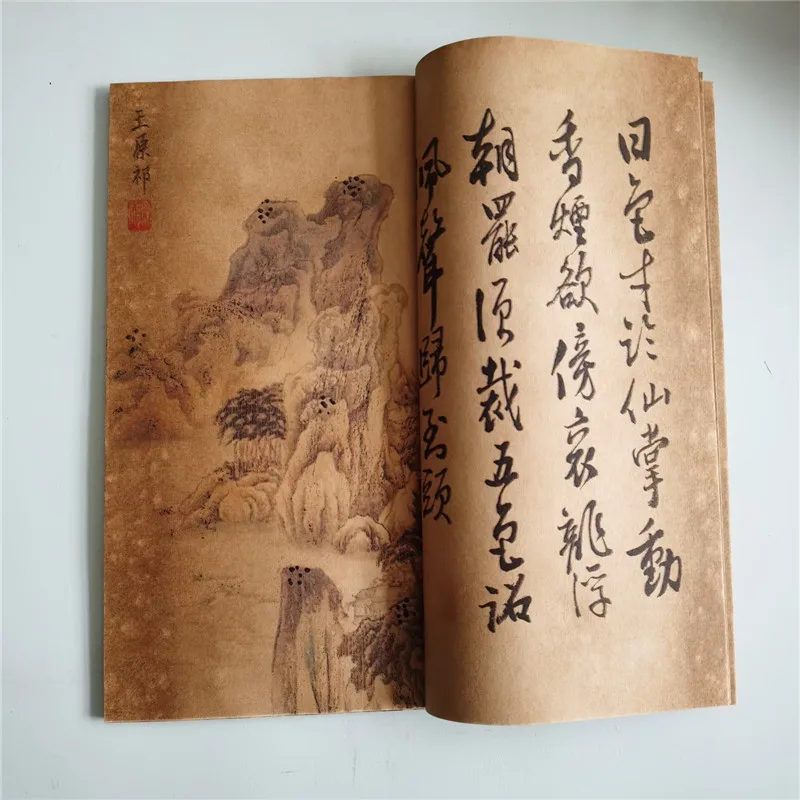 日色才臨仙掌動
香煙欲傍袞龍浮
朝罷須裁五色詔
佩聲歸到頭
王原祁